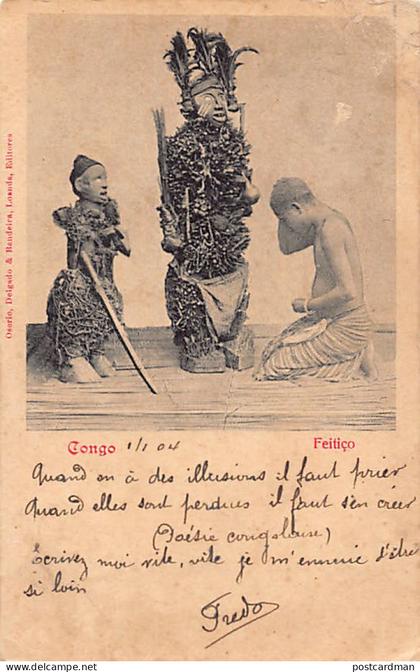 Osorio, Delgado & Bandeira, Loanda, Editores
Congo 1/1 04
Feitiço
Quand on à des illusions il faut prier
Quand elles sont perdues il faut s'en créer
(Poésie congolaise)
Ecrivez moi vite, vite je m'ennuie d'être
si loin
Fredo
© postcardman
postcardman.com